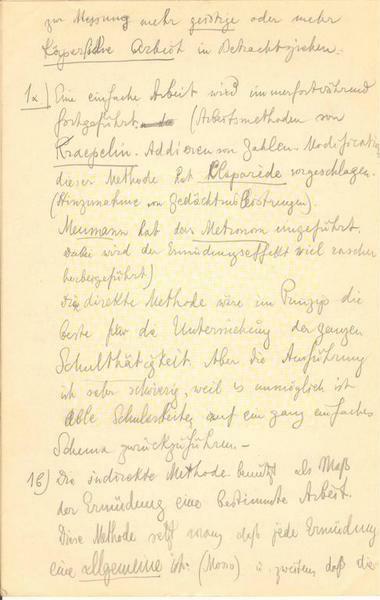 zur Messung mehr geistige oder mehr
körperliche Arbeit in Betracht ziehen.
1a) Eine einfache Arbeit wird immerfortwährend
fortgeführt. (Arbeitsmethoden von
Kraepelin. Addieren von Zahlen. Modification
dieser Methode hat Claparède vorgeschlagen.
(Hinzunahme von Gedächtnisleistungen).
Meumann hat das Metronom eingeführt.
Dabei wird der Ermüdungseffekt viel rascher
herbeigeführt)
Die direkte Methode wäre im Prinzip die
beste für die Untersuchung der ganzen
Schulthätigkeit. Aber die Ausführung
ist sehr schwierig, weil es unmöglich ist
alle Schularbeiten auf ein ganz einfaches
Schema zurückzuführen. –
1b) Die indirekte Methode benützt als Maß
der Ermüdung eine bestimmte Arbeit.
Diese Methode setzt voraus daß jede Ermüdung
eine allgemeine ist. (Mosso) u. zweitens daß die